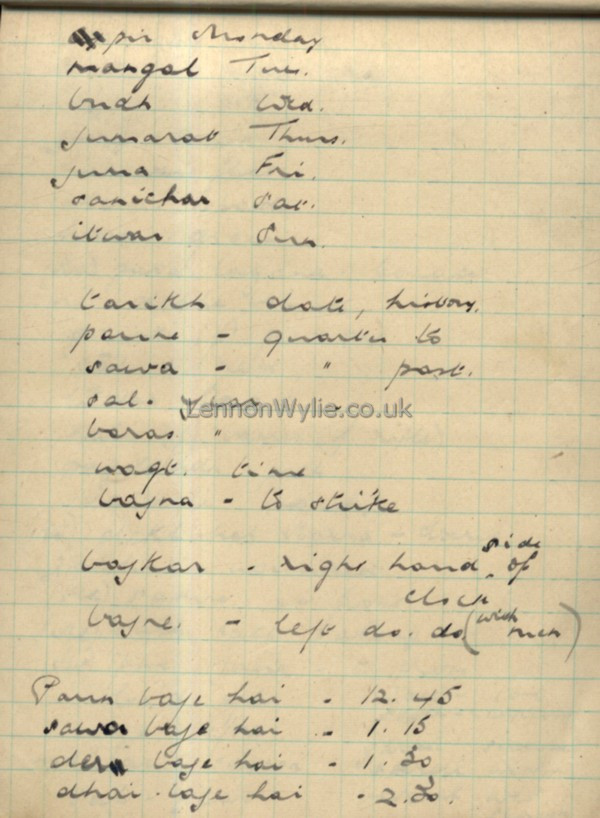 pir Monday
mangal Tues.
budh Wed.
jumarat Thurs.
juma Fri.
sanichar Sat.
itwar Sun.
tarikh date, history.
paune - quarter to
sawa - " past.
sal. year
LennonWylie.co.uk
baras "
waqt. time
bajna - to strike
bajkar - right hand side of
clock
bajne. - left do. do. (with
men)
Paun baje hai - 12.45
sawa baje hai - 1.15
derh baje hai - 1.30
dhai baje hai - 2.30.